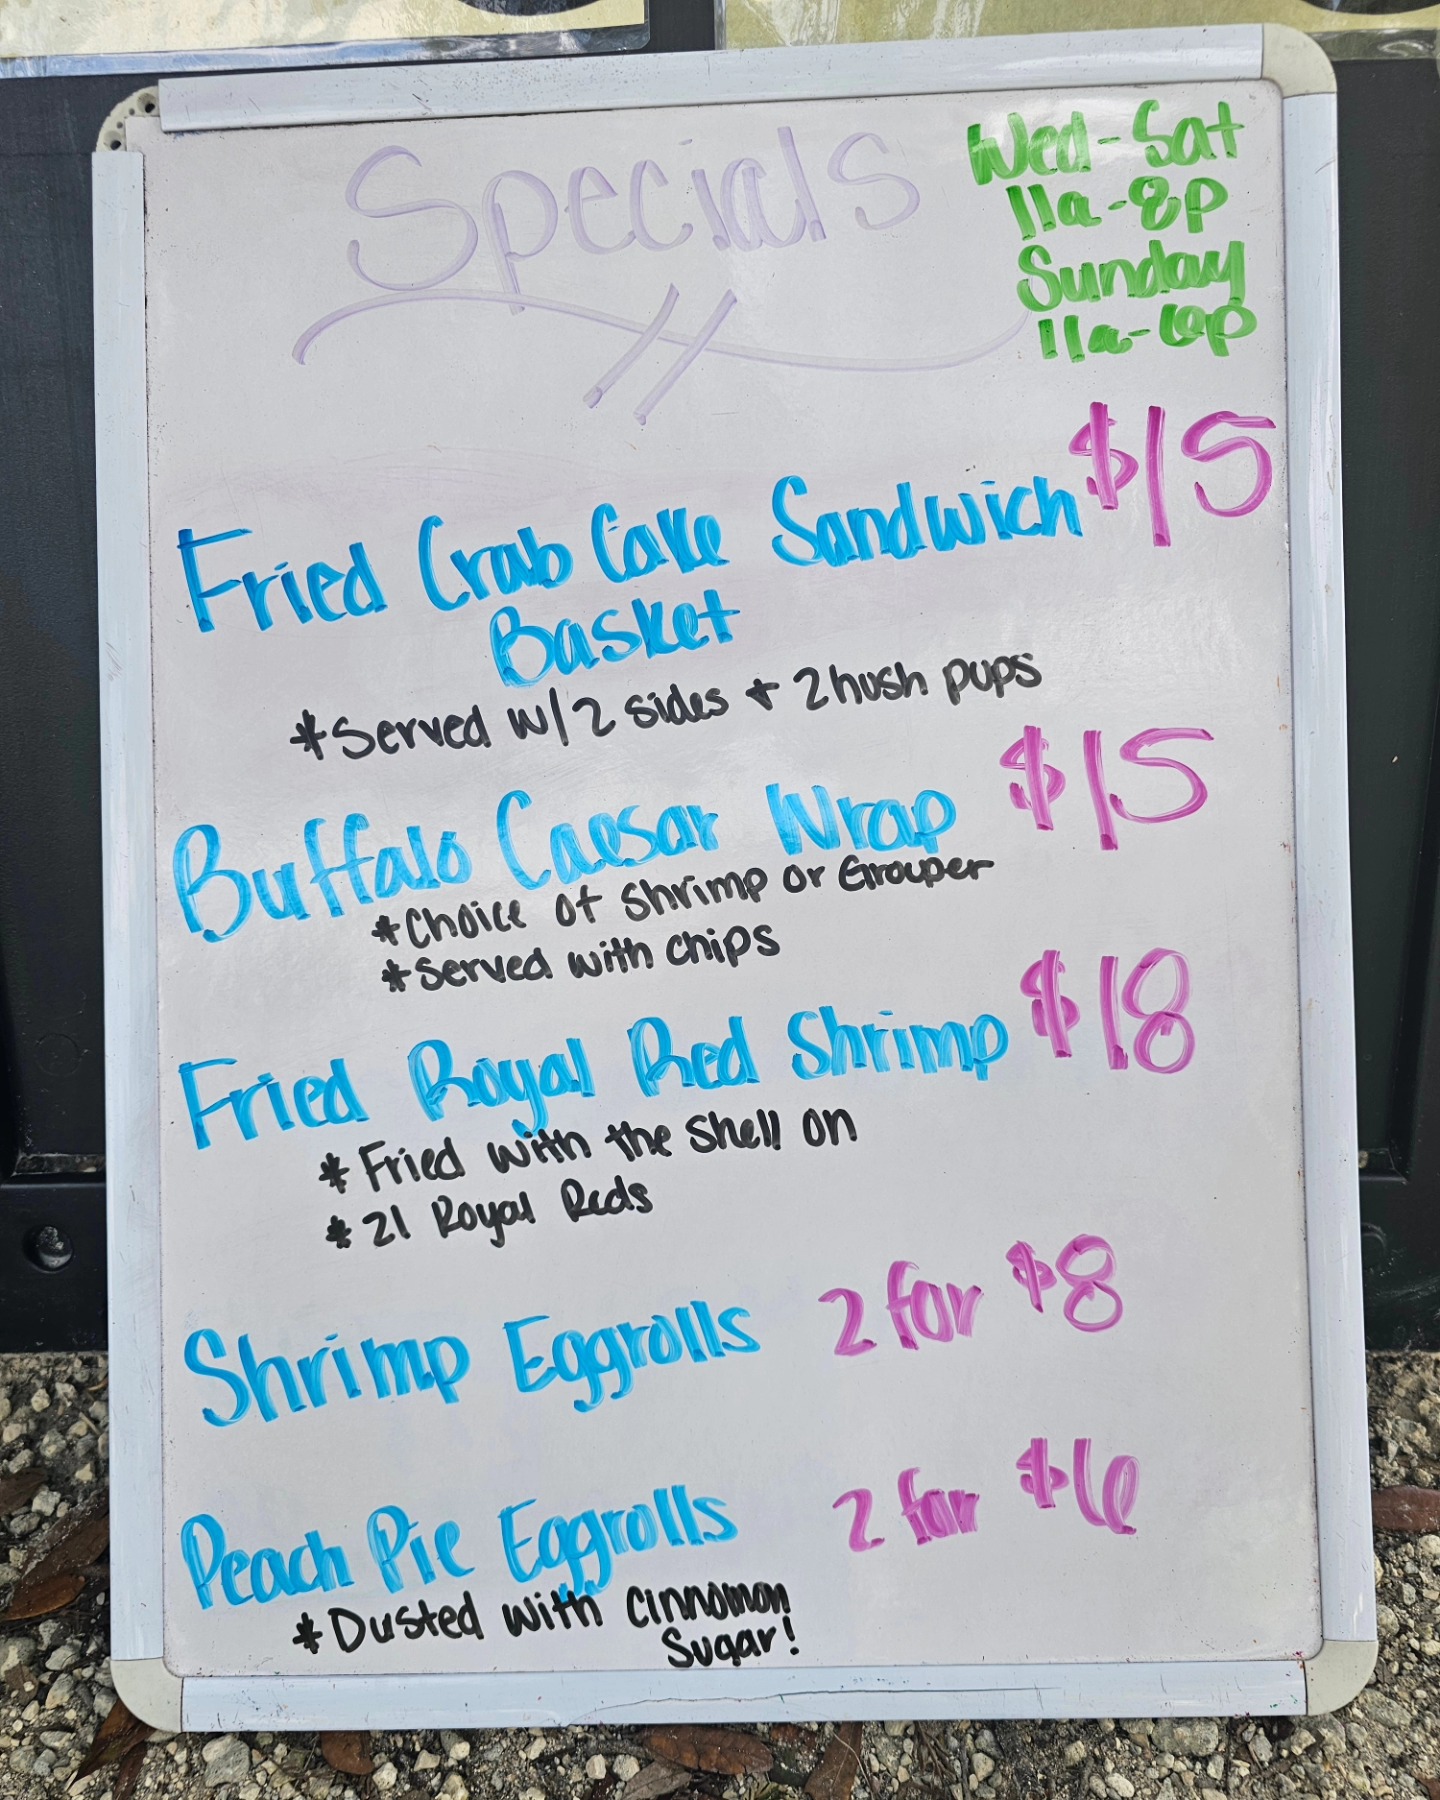 Specials
Wed-Sat
11a-8p
Sunday
11a-6p
Fried Crab Cake Sandwich $15
Basket
*Served w/2 sides + 2 hush pups
Buffalo Caesar Wrap $15
*Choice of Shrimp or Grouper
*Served with chips
Fried Royal Red Shrimp $18
* Fried with the Shell on
* 21 Royal Reds
Shrimp Eggrolls 2 for $8
Peach Pie Eggrolls 2 for $6
* Dusted with Cinnamon
Sugar!